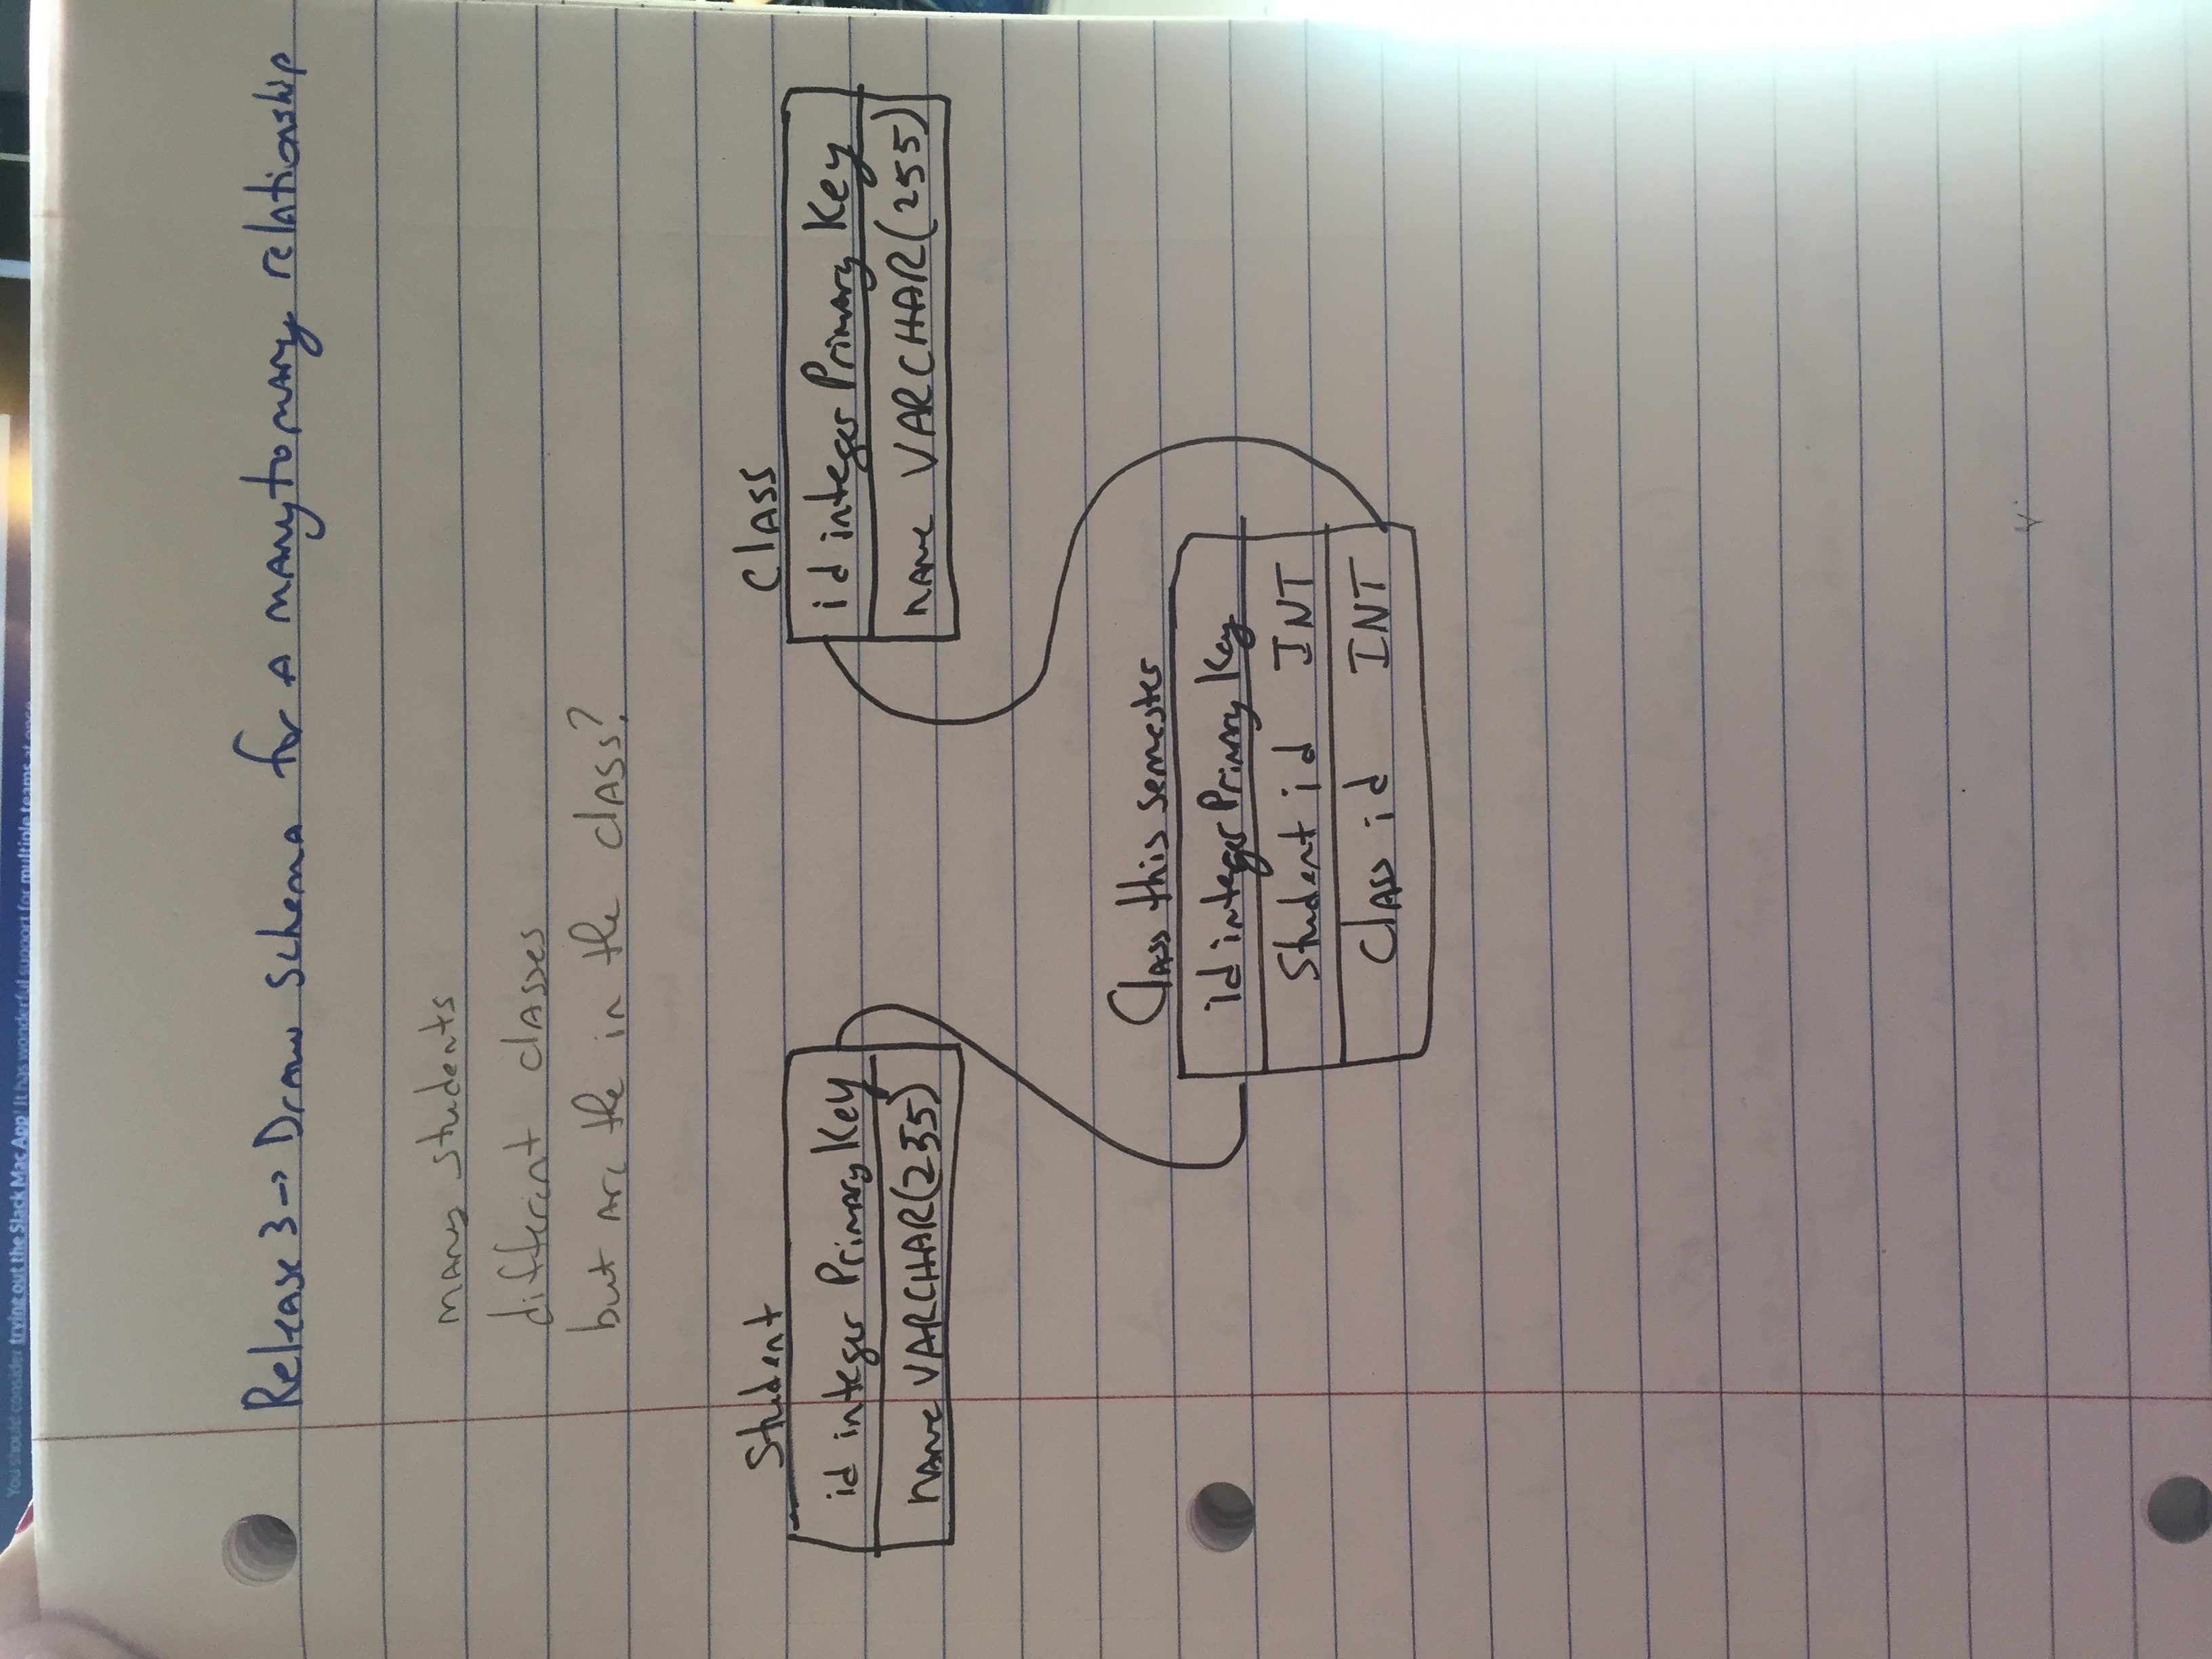 You should consider trying out the Slack Mac App! It has wonderful support for multiple teams at once
Release 3 → Draw Schema for A many to many relationship
many students
different classes
but are the in the class?
Student
id integer Primary Key
name VARCHAR(255)
Class
id integer Primary Key
name VARCHAR(255)
Class this semester
id integer Primary Key
Student id INT
Class id INT